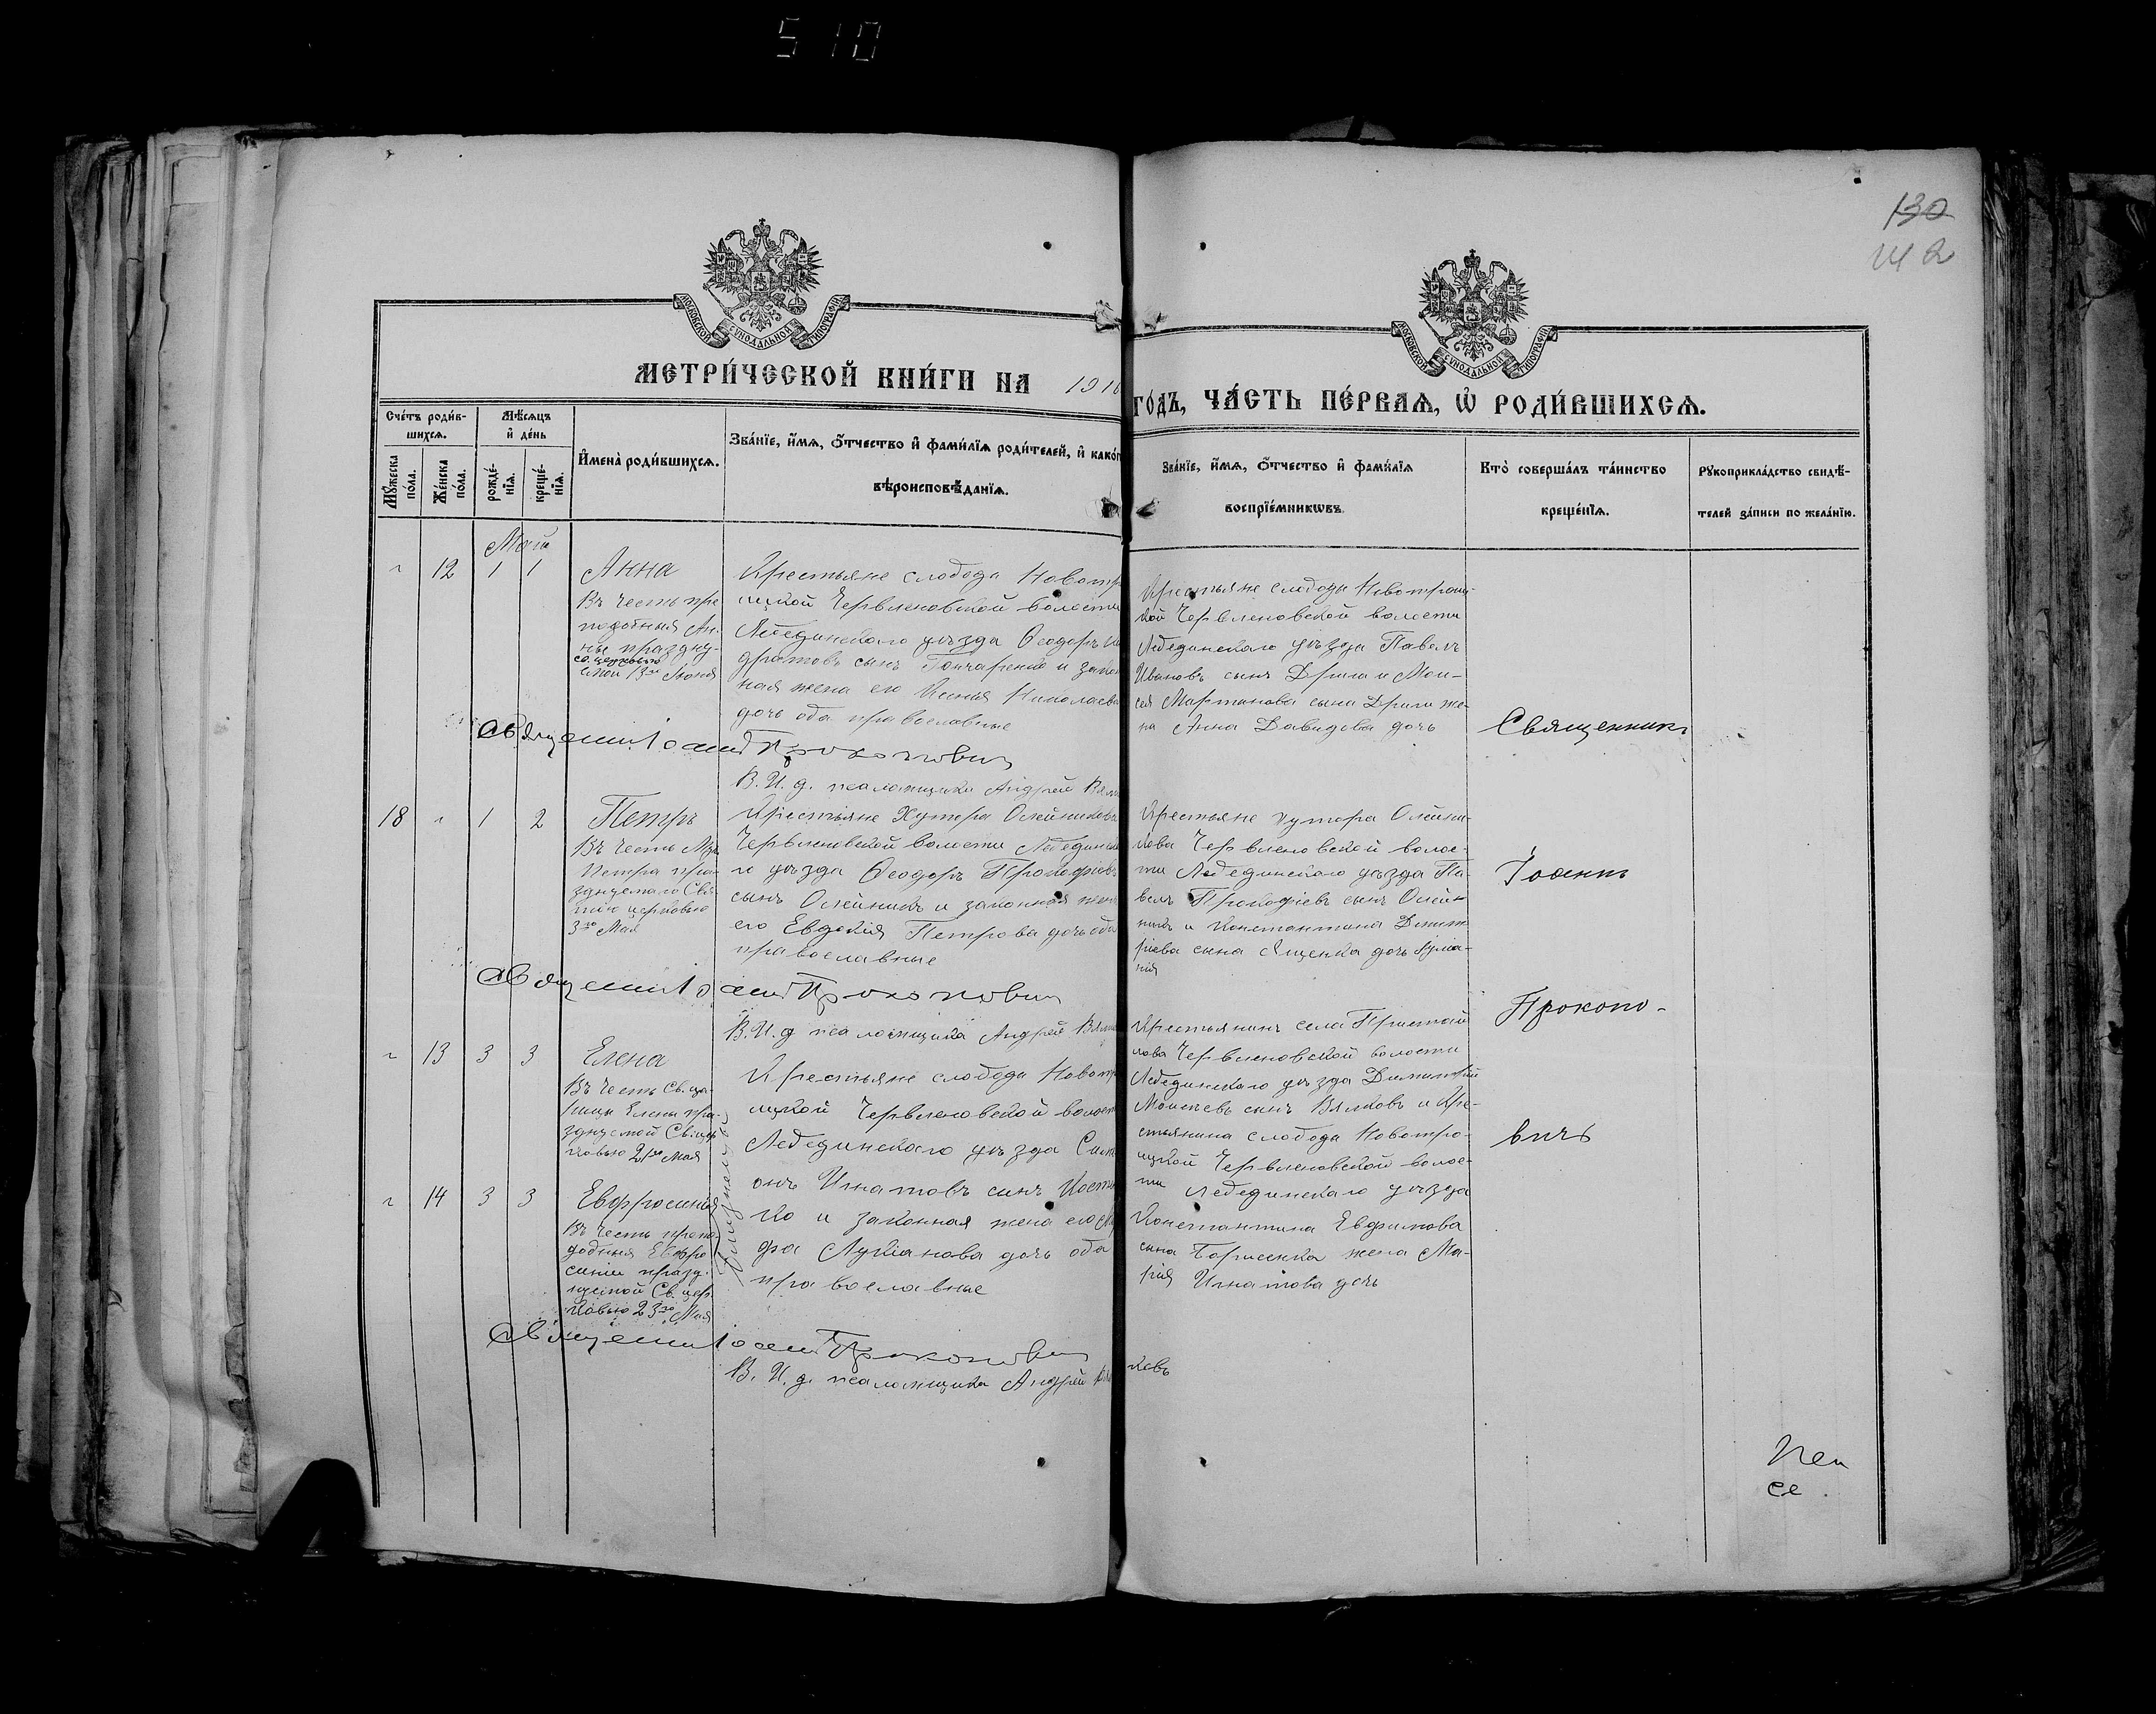 510
130
142
МОСКОВСКОЙ СУНОДАЛЬНОЙ ТИПОГРАФІИ
МОСКОВСКОЙ СУНОДАЛЬНОЙ ТИПОГРАФІИ
МЕТРИ́ЧЕСКОЙ КНИ́ГИ НА 1916
ГО́ДЪ, ЧА́СТЬ ПЕ́РВАѦ, Ѡ҆ РОДИ́ВШИХСѦ.
Сче́тъ роди́в-
шихсѧ.
Мꙋ́жеска по́ла.
Же́нска по́ла.
Мѣ́сѧцъ
и҆ де́нь
рожде́-
нїѧ.
креще́-
нїѧ.
И҆мена̀ роди́вшихсѧ.
Зва́нїе, и҆́мѧ, ѻ҆́тчество и҆ фами́лїѧ роди́телей, и҆ како́г
вѣроисповѣ́данїѧ.
Зва́нїе, и҆́мѧ, ѻ҆́тчество и҆ фами́лїѧ
воспрїе́мникѡвъ.
Кто̀ соверша́лъ та́инство
креще́нїѧ.
Рꙋкоприкла́дство свидѣ́-
телей за́писи по жела́нїю.
Май
12 1 1
Анна
Въ честь пре
подобныя Ан-
ны праздну-
св. церковью
13го Іюня
Крестьяне слободы Новотр
ицкой Червленовской волости
Лебединскаго уѣзда Ѳеодоръ Ко
дратовъ сынъ Гончаренко и закон
ная жена его Ксенія Николаева
дочь оба православные
Крестьяне слободы Новотроиц-
кой Червленовской волости
Лебединскаго уѣзда Павелъ
Ивановъ сынъ Дрыга и Мои-
сея Мартинова сына Дрыги же-
на Анна Давидова дочь
Священникъ
Священ Іоаннъ Прокопович
В. И. д. псаломщика Андрей Вял
18 1 2
Петръ
Въ честь Муч
Петра пра-
зднуемаго Свя-
тою церковью
3го Мая
Крестьяне Хутора Олейникова
Червленовской волости Лебединска
го уѣзда Ѳеодоръ Прокофіевъ
сынъ Олейникъ и законная жена
его Евдокія Петрова дочь оба
православные
Крестьяне хутора Олейни-
кова Червленовской волос-
ти Лебединскаго уѣзда Па-
велъ Прокофіевъ сынъ Олей-
никъ и Константина Димит
ріева сына Ященка дочь Іуліа-
нія
Іоаннъ
Священ Іоаннъ Прокопович
В. И. д. псаломщика Андрей Вял
Прокопо-
13 3 3
Елена
Въ честь Св. ца-
рицы Елены пра-
зднуемой Св. цер
ковью 21го Мая
Крестьяне слободы Новотр
ицкой Червленовской волост
Лебединскаго уѣзда Сим
онъ Игнатовъ сынъ Костен
ко и законная жена его
фа Лукіанова дочь оба
православные
Крестьянинъ села Пристай
лова Червленовской волости
Лебединскаго уѣзда Димитрій
Моисеевъ сынъ Вялковъ и Кре-
стьянина слободы Новотро-
ицкой Червленовской волос-
ти Лебединскаго уѣзда
Константина Евфимова
сына Борисенка жена Ма-
рія Игнатова дочь
вичъ
14 3 3
Евфросинія
Въ честь препо-
добныя Евфро
синіи празд-
нуемой Св. цер-
ковью 23го Мая
Священ Іоаннъ Прокопович
В. И. д. псаломщика Андрей Вял
ковъ
се